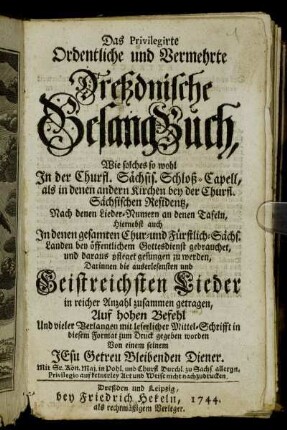 Das Privilegirte
Ordentliche und Vermehrte
Dreßdnische
Gesang-Buch,
Wie solches so wohl
In der Churfl. Sächsis. Schloß-Capell,
als in denen andern Kirchen bey der Churfl.
Sächsischen Residentz,
Nach denen Lieder-Numern an denen Tafeln,
Hiernebst auch
In denen gesamten Chur- und Fürstlich-Sächs.
Landen bey öffentlichem Gottesdienst gebrauchet,
und daraus pfleget gesungen zu werden,
Darinnen die auserlesensten und
Geistreichsten Lieder
in reicher Anzahl zusammen getragen,
Auf hohen Befehl
Und vieler Verlangen mit leserlicher Mittel-Schrifft in
diesem Format zum Druck gegeben worden
Von einem seinem
JEsu Getreu Bleibenden Diener.
Mit Sr. Kön. Maj. in Pohl. und Churfl. Durchl. zu Sachs. allergn.
Privilegio auf keinerley Art und Weise nicht nachzudrucken.
Dreßden und Leipzig,
bey Friedrich Hekeln, 1744.
als rechtmäßigem Verleger.